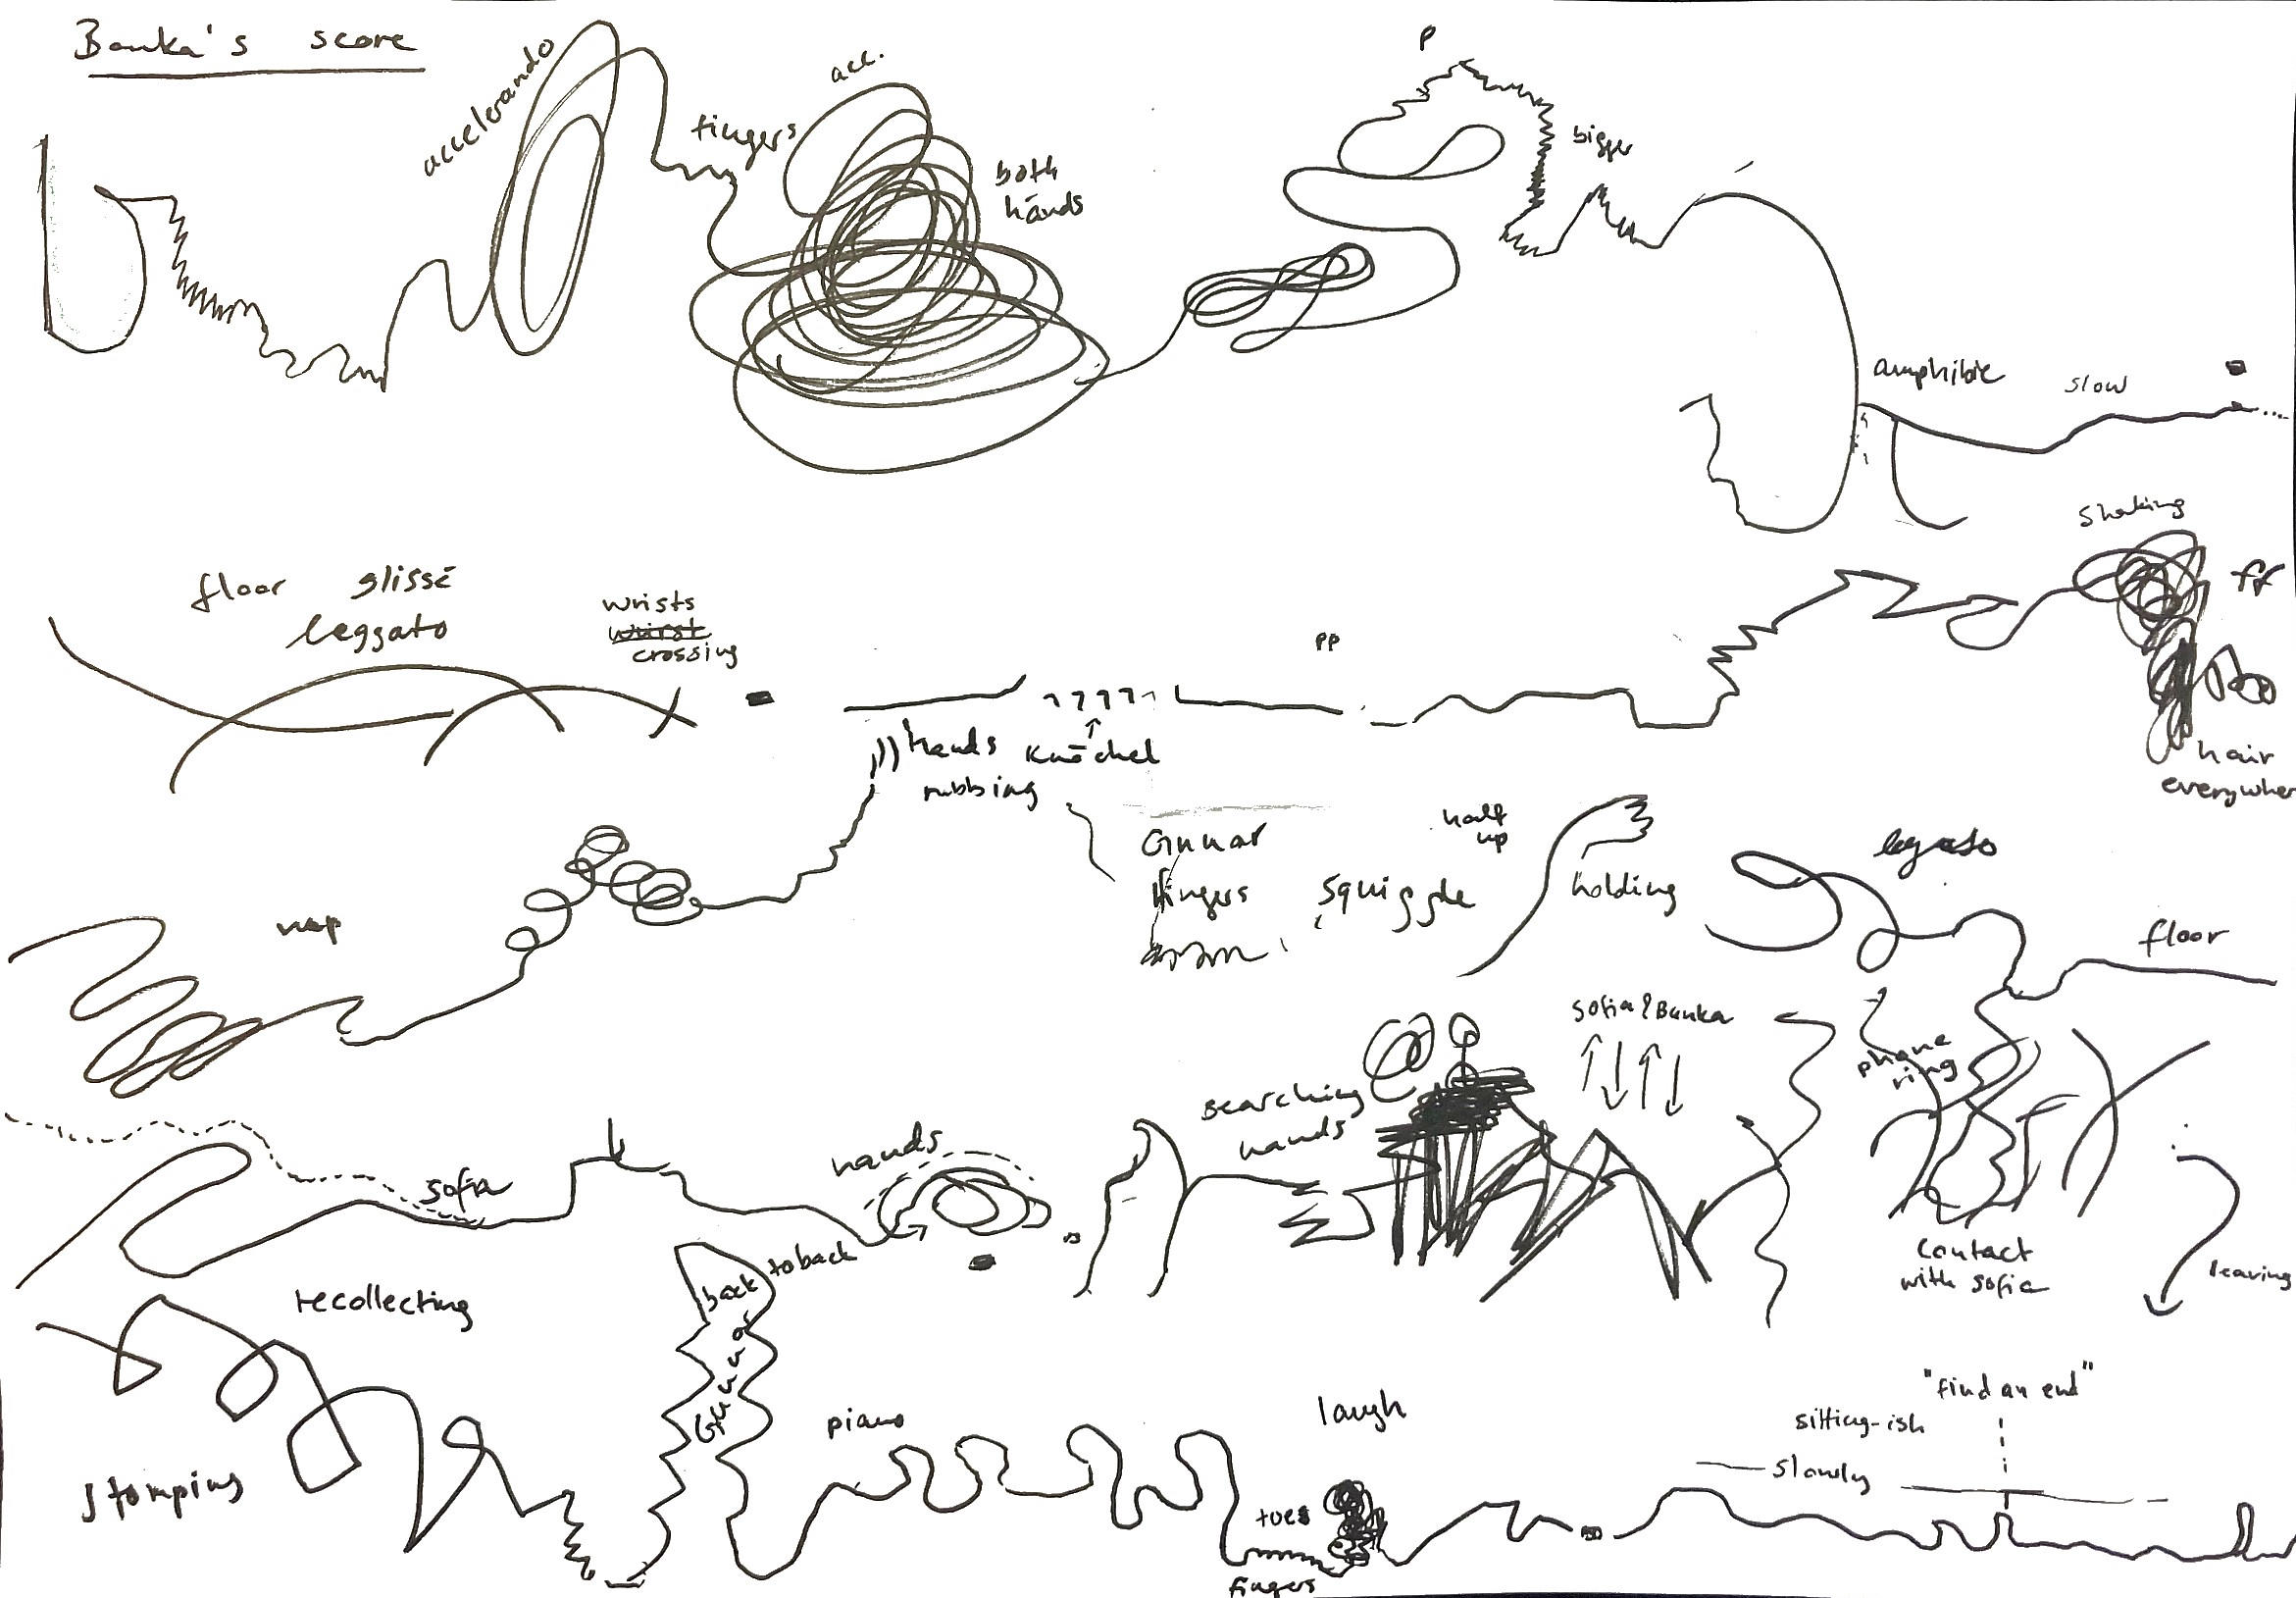 Banka's score
accelerando
fingers
acc.
both
hands
p
bigger
amphibie
slow
floor glissé
leggato
wrists
wurst
crossing
hands
rubbing
Knöchel
pp
shaking
ff
hair
everywher
nap
Gunnar
fingers
squiggle
half
up
holding
legato
floor
sofia
hands
searching
hands
sofia & Banka
phone
ring
contact
with sofia
leaving
recollecting
stomping
back to back
Gunnar
piano
toes
fingers
laugh
slowly
sitting-ish
"find an end"